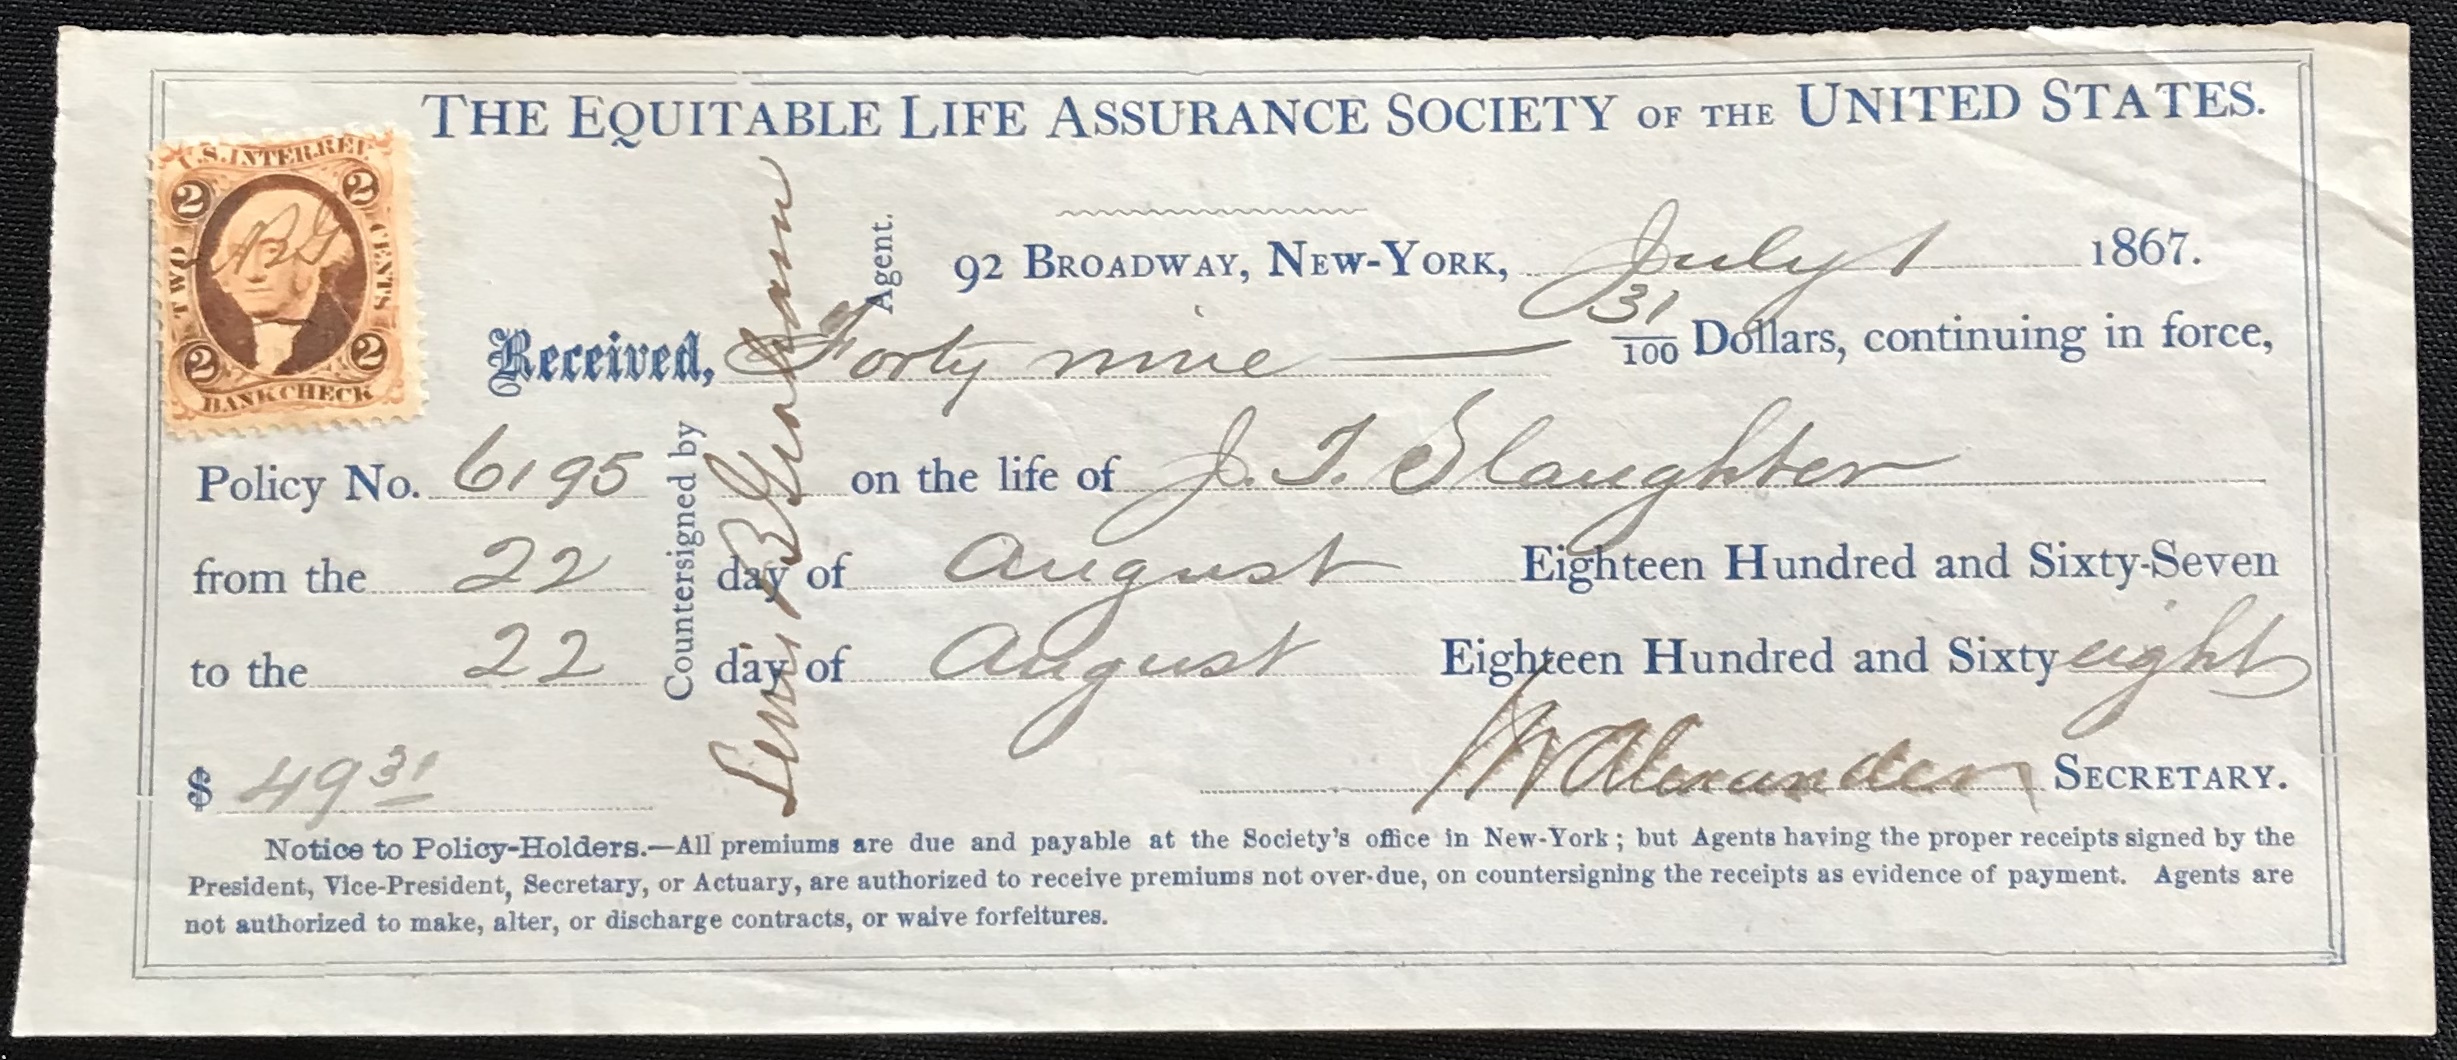 THE EQUITABLE LIFE ASSURANCE SOCIETY OF THE UNITED STATES.
U.S. INTER. REV.
2 2
TWO CENTS
2 2
BANK CHECK
92 BROADWAY, NEW-YORK, July 1 1867.
Received, Forty nine 31/100 Dollars, continuing in force,
Policy No. 6195 on the life of J. T. Slaughter
from the 22 day of August Eighteen Hundred and Sixty-Seven
to the 22 day of August Eighteen Hundred and Sixty eight
$ 49 31
Alexander SECRETARY.
Countersigned by
Agent.
Notice to Policy-Holders.—All premiums are due and payable at the Society's office in New-York; but Agents having the proper receipts signed by the
President, Vice-President, Secretary, or Actuary, are authorized to receive premiums not over-due, on countersigning the receipts as evidence of payment. Agents are
not authorized to make, alter, or discharge contracts, or waive forfeitures.